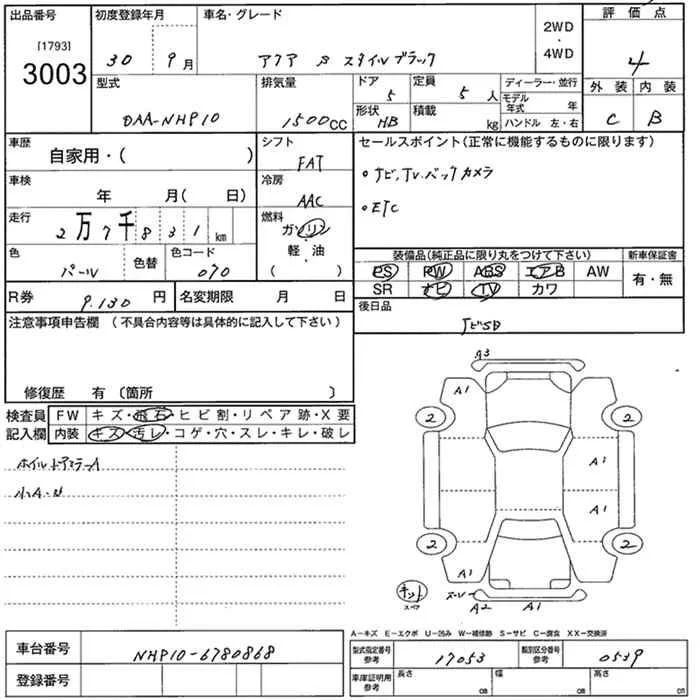 出品番号
[1793]
3003
初度登録年月
30 9月
車名・グレード
アクア S スタイルブラック
2WD
・
4WD
評価点
4
外装 内装
C B
型式
DAA-NHP10
排気量
1500CC
ドア
5
形状
HB
定員
5人
積載
kg
ディーラー・並行
モデル年式 年
ハンドル 左・右
車歴
自家用・( )
シフト
FAT
車検
年 月( 日)
冷房
AAC
走行
2万7千831km
燃料
ガソリン
・
軽・油
( )
色
パール
色替
色コード
070
R券
9.130円
名変期限 月 日
セールスポイント(正常に機能するものに限ります)
・ナビ,TV.バックカメラ
・ETC
装備品(純正品に限り丸をつけて下さい)
新車保証書
PS PW ABS エアB AW
SR ナビ TV カワ
有・無
後日品
ナビSD
注意事項申告欄(不具合内容等は具体的に記入して下さい)
修復歴 有(箇所 )
検査員記入欄
FW キズ・飛石・ヒビ割・リペア跡・X要
内装 キズ・汚レ・コゲ・穴・スレ・キレ・破レ
ホイルドアミラーA
小A・U
G3
A1
2 2
A1
A1
2 2
A1
キット
スペア
スーレ
A2 A1
A-キズ E-エクボ U-凹み W-補修跡 S-サビ C-腐食 XX-交換済
車台番号
NHP10-6780868
登録番号
型式指定番号
参考
17053
類別区分番号
参考
0539
車庫証明用
参考
長さ cm
幅 cm
高さ cm